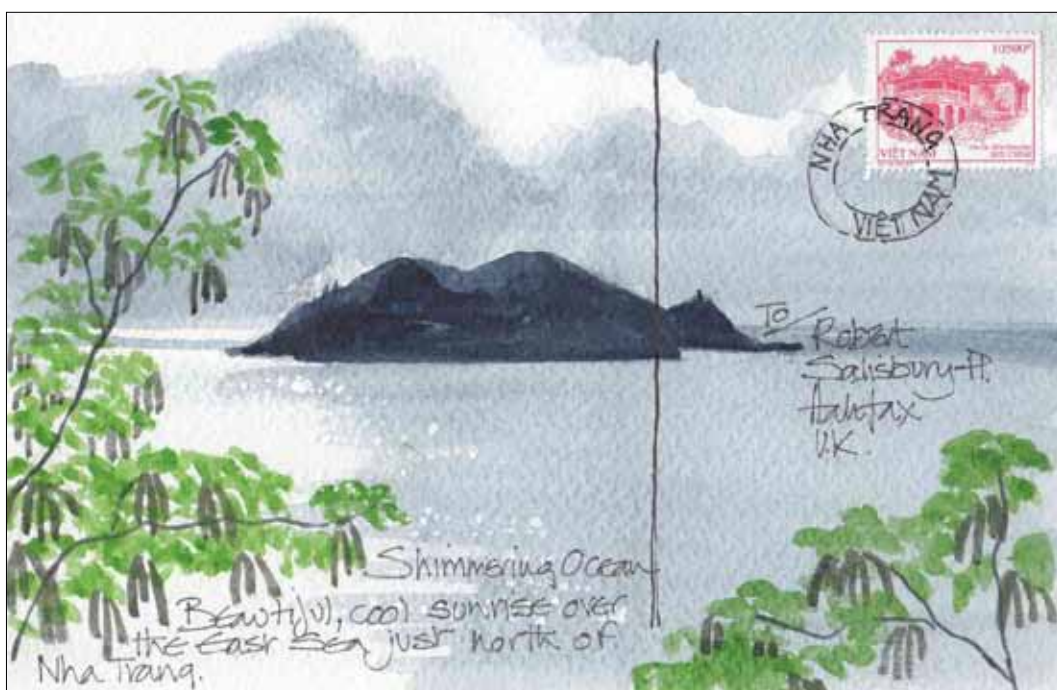 10500đ
VIỆT NAM
NHA TRANG
VIỆT NAM
To
Robert
Salisbury-Pl.
Halifax
U.K.
Shimmering Ocean
Beautiful, cool sunrise over
the East Sea just north of
Nha Trang.